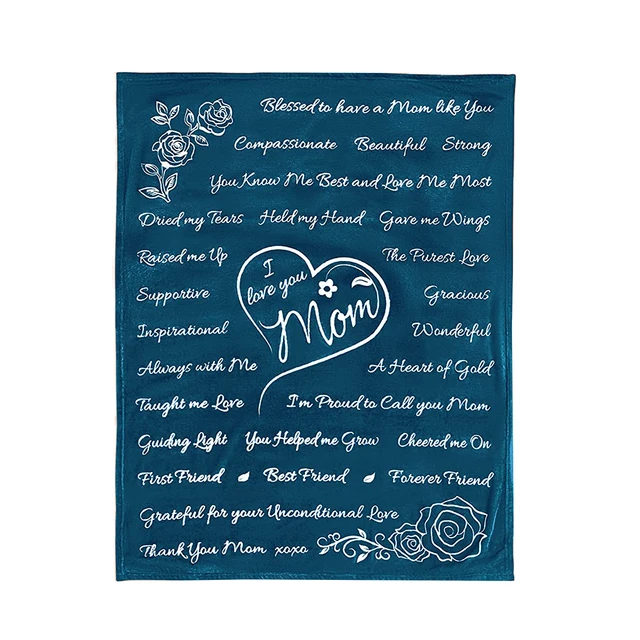 Blessed to have a Mom like You
Compassionate Beautiful Strong
You Know Me Best and Love Me Most
Dried my Tears Held my Hand Gave me Wings
Raised me Up The Purest Love
I love you Mom
Supportive Gracious
Inspirational Wonderful
Always with Me A Heart of Gold
Taught me Love I'm Proud to Call you Mom
Guiding Light You Helped me Grow Cheered me On
First Friend Best Friend Forever Friend
Grateful for your Unconditional Love
Thank You Mom xoxo